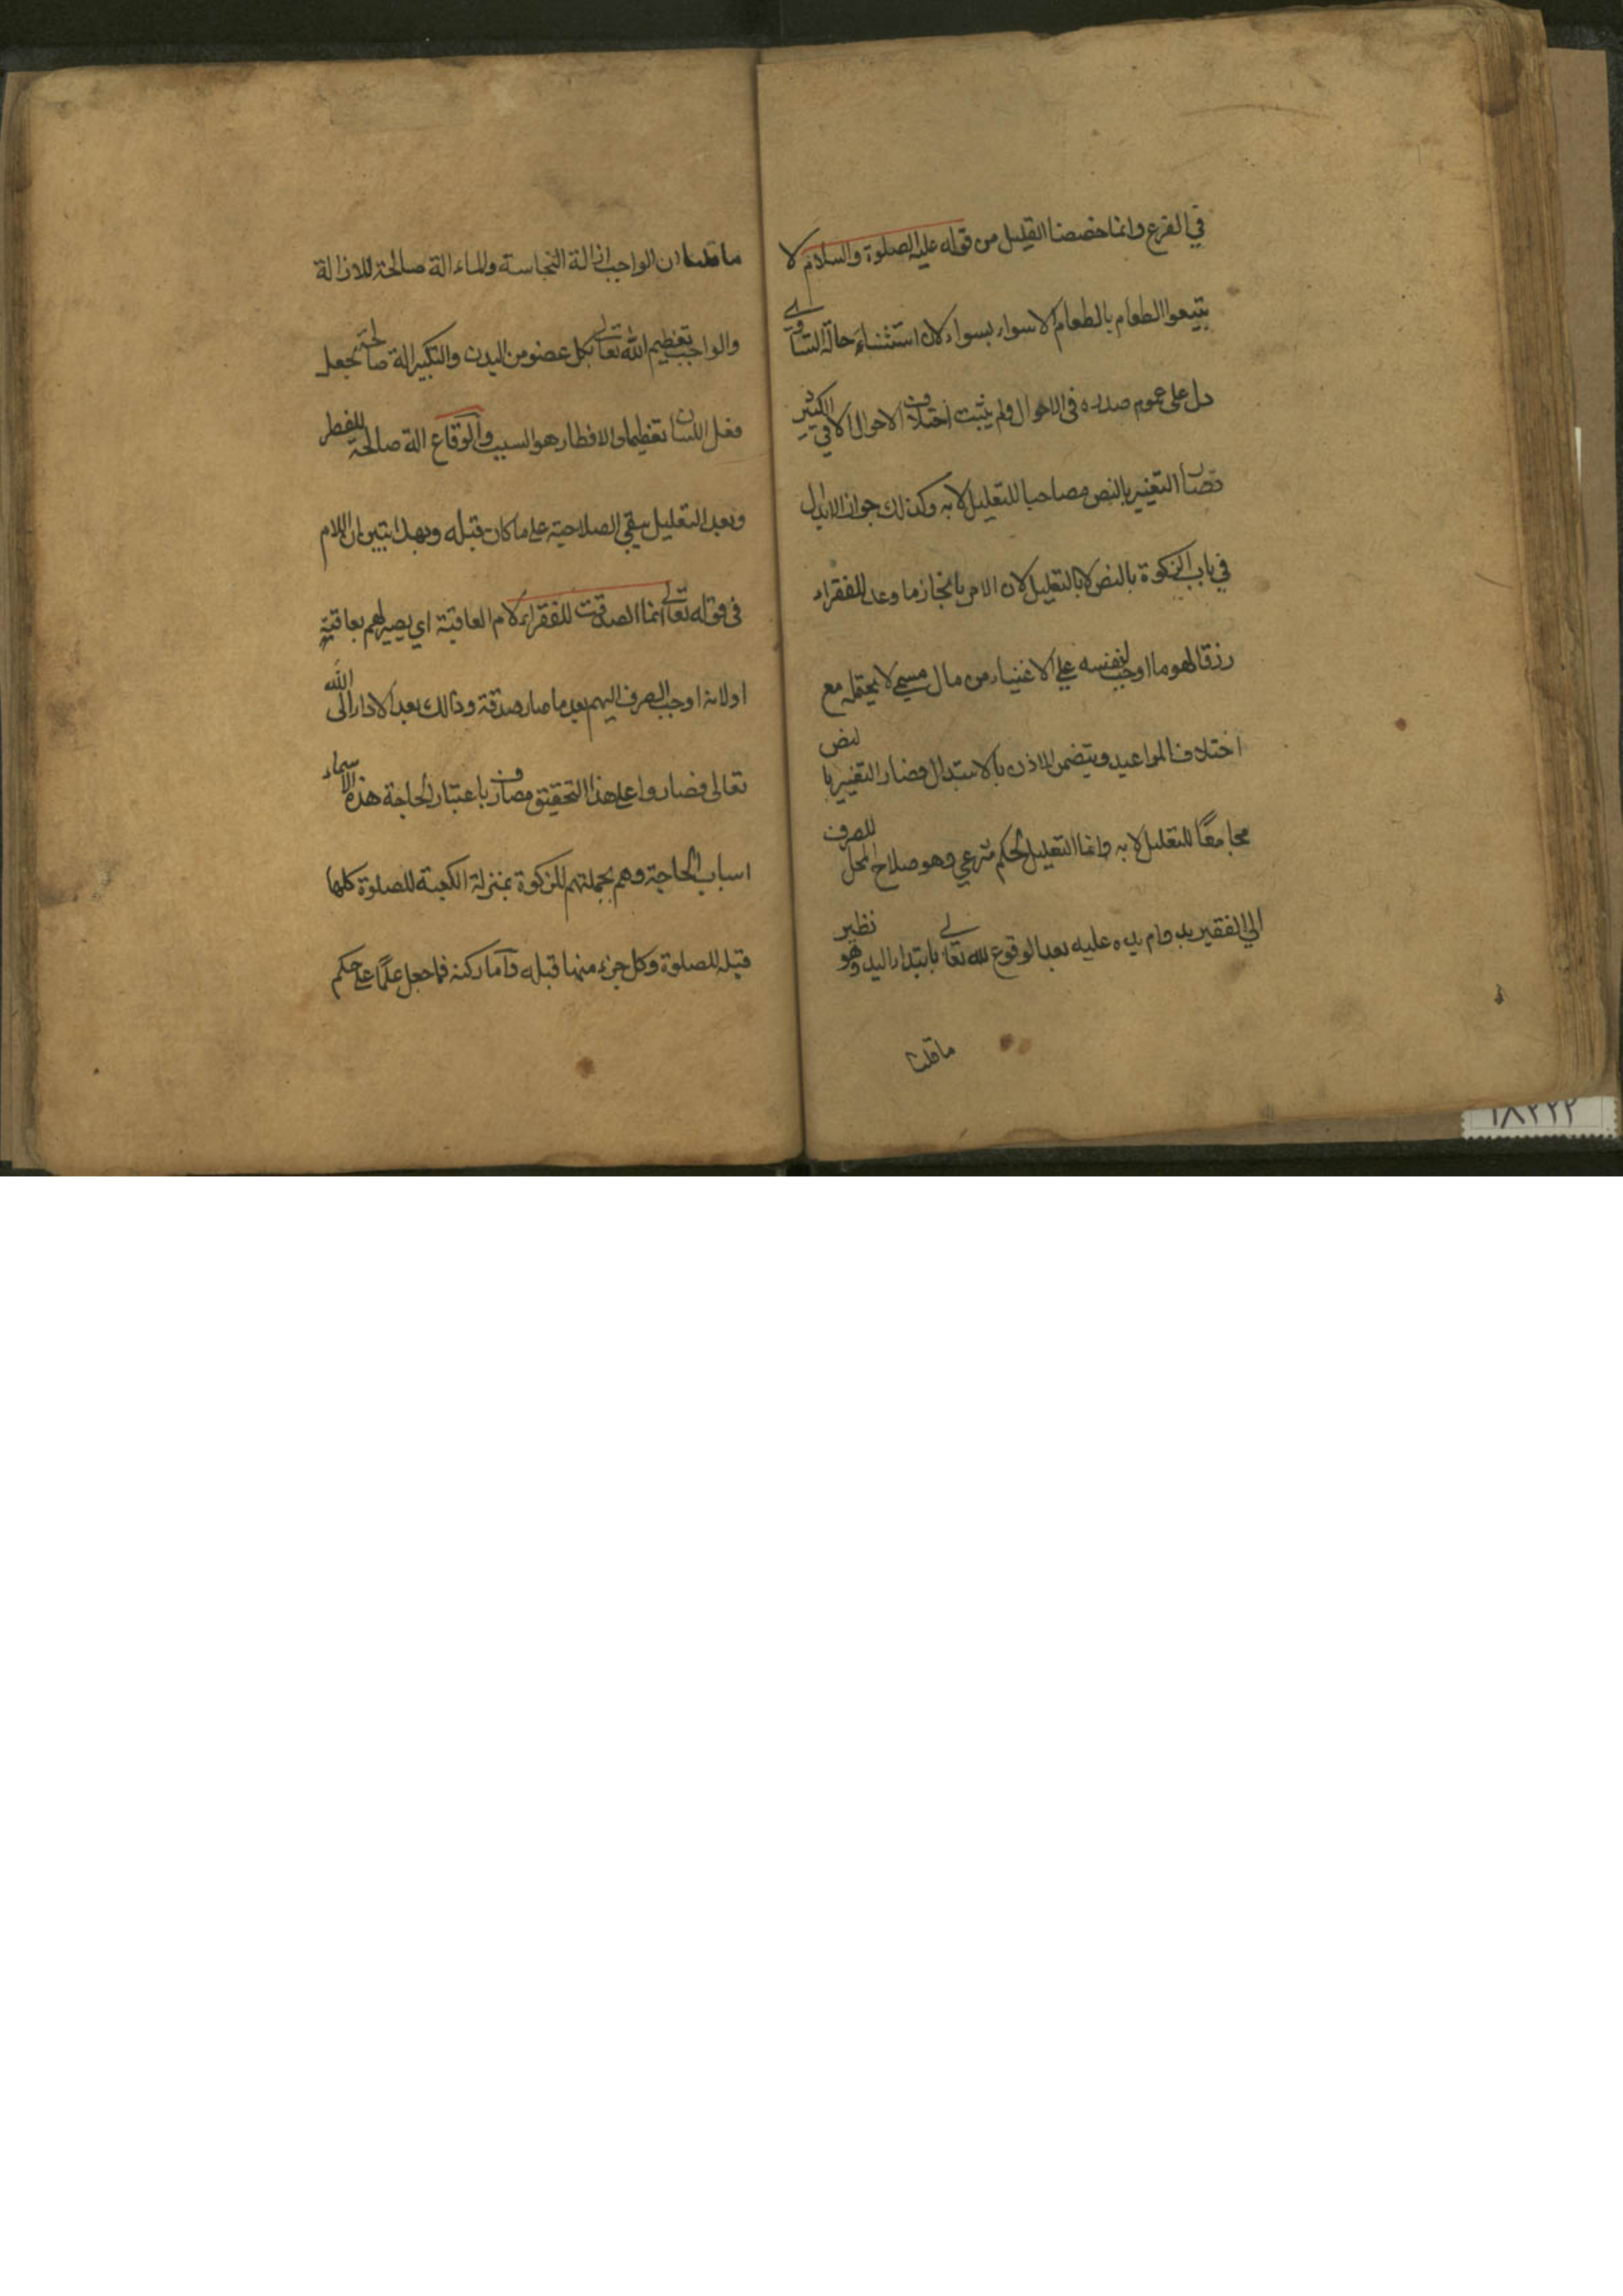 في الفرع وانما خصصنا القليل من قوله عليه الصلوة والسلام لا
تبيعوا الطعام بالطعام الا سواء بسواء لان استثناء حالة التساوي
دل على عموم صدره في الاحوال ولم يثبت اختلاف الاحوال الا في الكثير
فصار التغيير بالنص مصاحبا للتعليل لا به وكذلك جواز الابدال
في باب الزكوة بالنص لا بالتعليل لان الامر بانجاز ما وعد للفقراء
رزقا لهو مما اوجب لنفسه على الاغنياء من مال مسمى لا يحتمله مع
اختلاف المواعيد ويتضمن الاذن بالاستبدال فصار التغيير بالنص
مجامعا للتعليل لا به وانما التعليل لحكم شرعي وهو صلاح المحل للصرف
الى الفقير بدوام يده عليه بعد الوقوع لله تعالى بابتداء اليد وهو نظير
ما قلنا
ما قلنا ان الواجب ازالة النجاسة والماء الة صالحة للازالة
والواجب تعظيم الله تعالى بكل عضو من البدن والتكبير الة صالحة بجعل
فعل اللسان تعظيما والافطار هو السبب والوقاع الة صالحة للفطر
وبعد التعليل يبقى الصلاحية على ما كان قبله وبهذا يتبين ان اللام
في قوله تعالى انما الصدقت للفقراء لام العاقبة اي يصير لهم بعاقبته
او لانه اوجب الصرف اليهم بعد ما صار صدقة وذالك بعد الاداء الى الله
تعالى فصاروا على هذا التحقيق مصارف باعتبار الحاجة هذه الاسماء
اسباب الحاجة وهم بجملتهم للزكوة بمنزلة الكعبة للصلوة كلها
قبله للصلوة وكل جزء منها قبله واما ركنه فما جعل علما على حكم
١٨٢٢٢